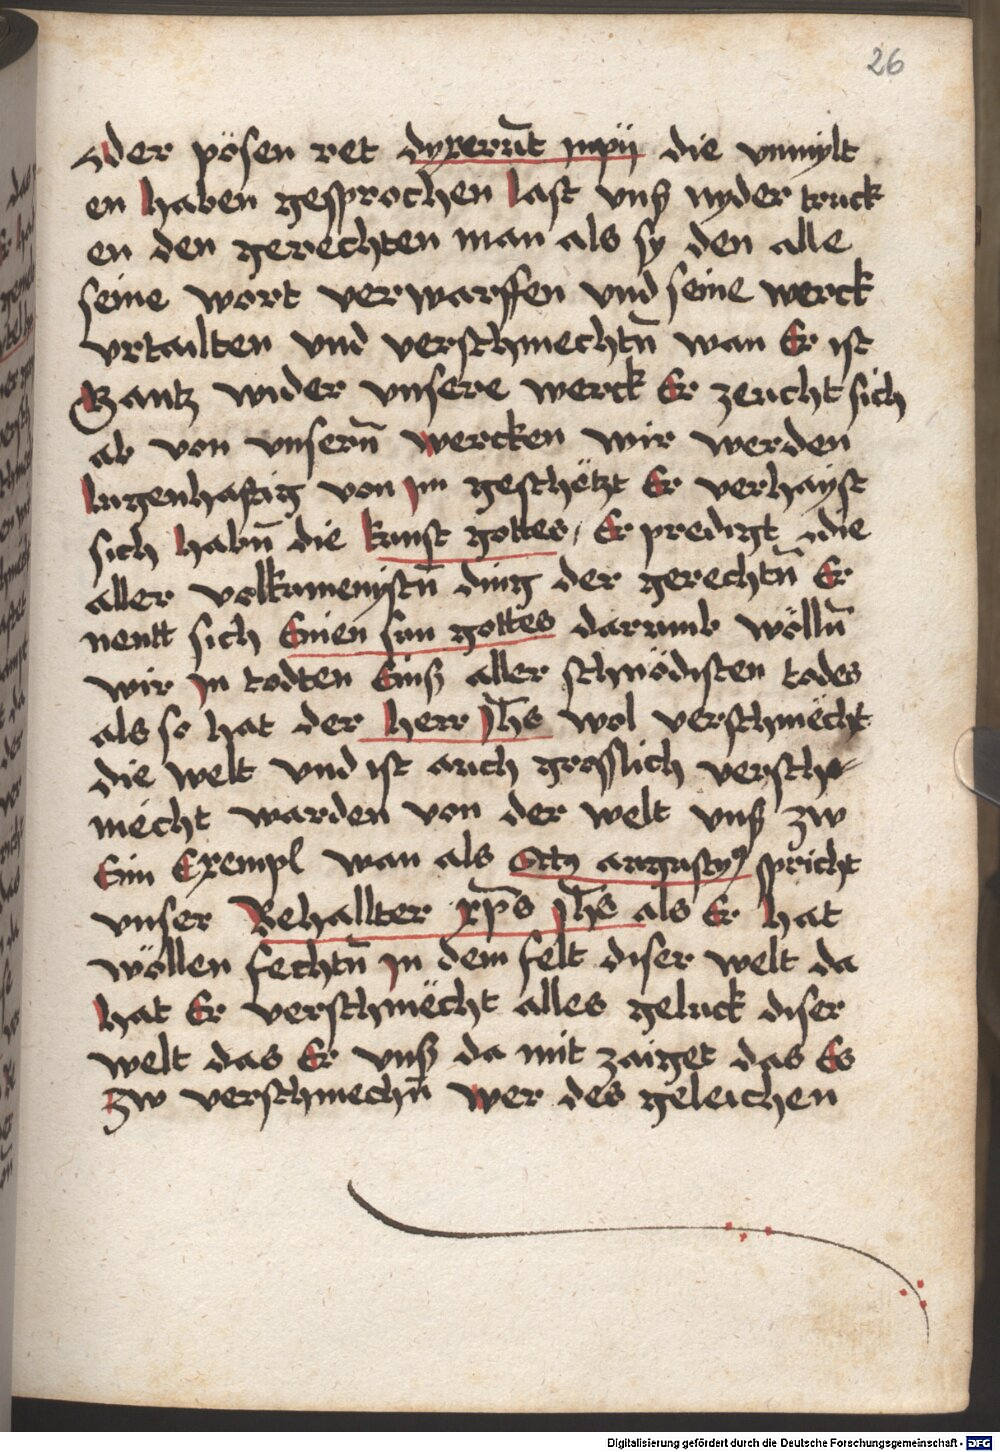 26
der pösen ret dyxerūt inpii die vnmylt
en haben gesprochen last vnß nyder truck
en den gerechten man als sy den alle
seine wort verwarffen vnd seine werck
vrtailten vnd verschmechtn̄ wan Er ist
Gantz wider vnsere werck Er zeucht sich
ab von vnsern̄ wercken wir werden
lugenhaftig von im geschëtzt Er verhayst
sich habn̄ die kunst gottes / Er predigt die
aller volkumenistn̄ ding der gerechtn̄ Er
nentt sich Einen sun gottes darumb wölln̄
wir in todten Einß aller schnödisten todes
als so hat der herr Jh̄s wol verschmëcht
die welt vnd ist auch grosslich versch-
mëcht warden von der welt vnß zw
Eim Exempl wan als Sctꝰ augustyꝰ spricht
vnser Behallter xp̄s Jh̄s als Er hat
wöllen fechtn̄ in dem felt diser welt da
hat Er verschmëcht alles geluck diser
welt das Er vnß da mit zaiget das Es
zw verschmechn̄ wer des geleichen
Digitalisierung gefördert durch die Deutsche Forschungsgemeinschaft - DFG